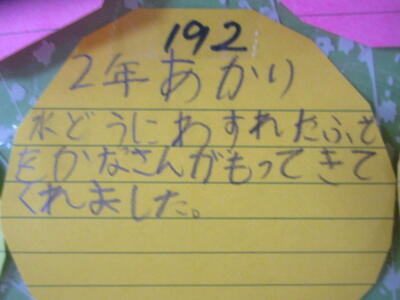 192
2年あかり
水どうにわすれたふで
をかなさんがもってきて
くれました。